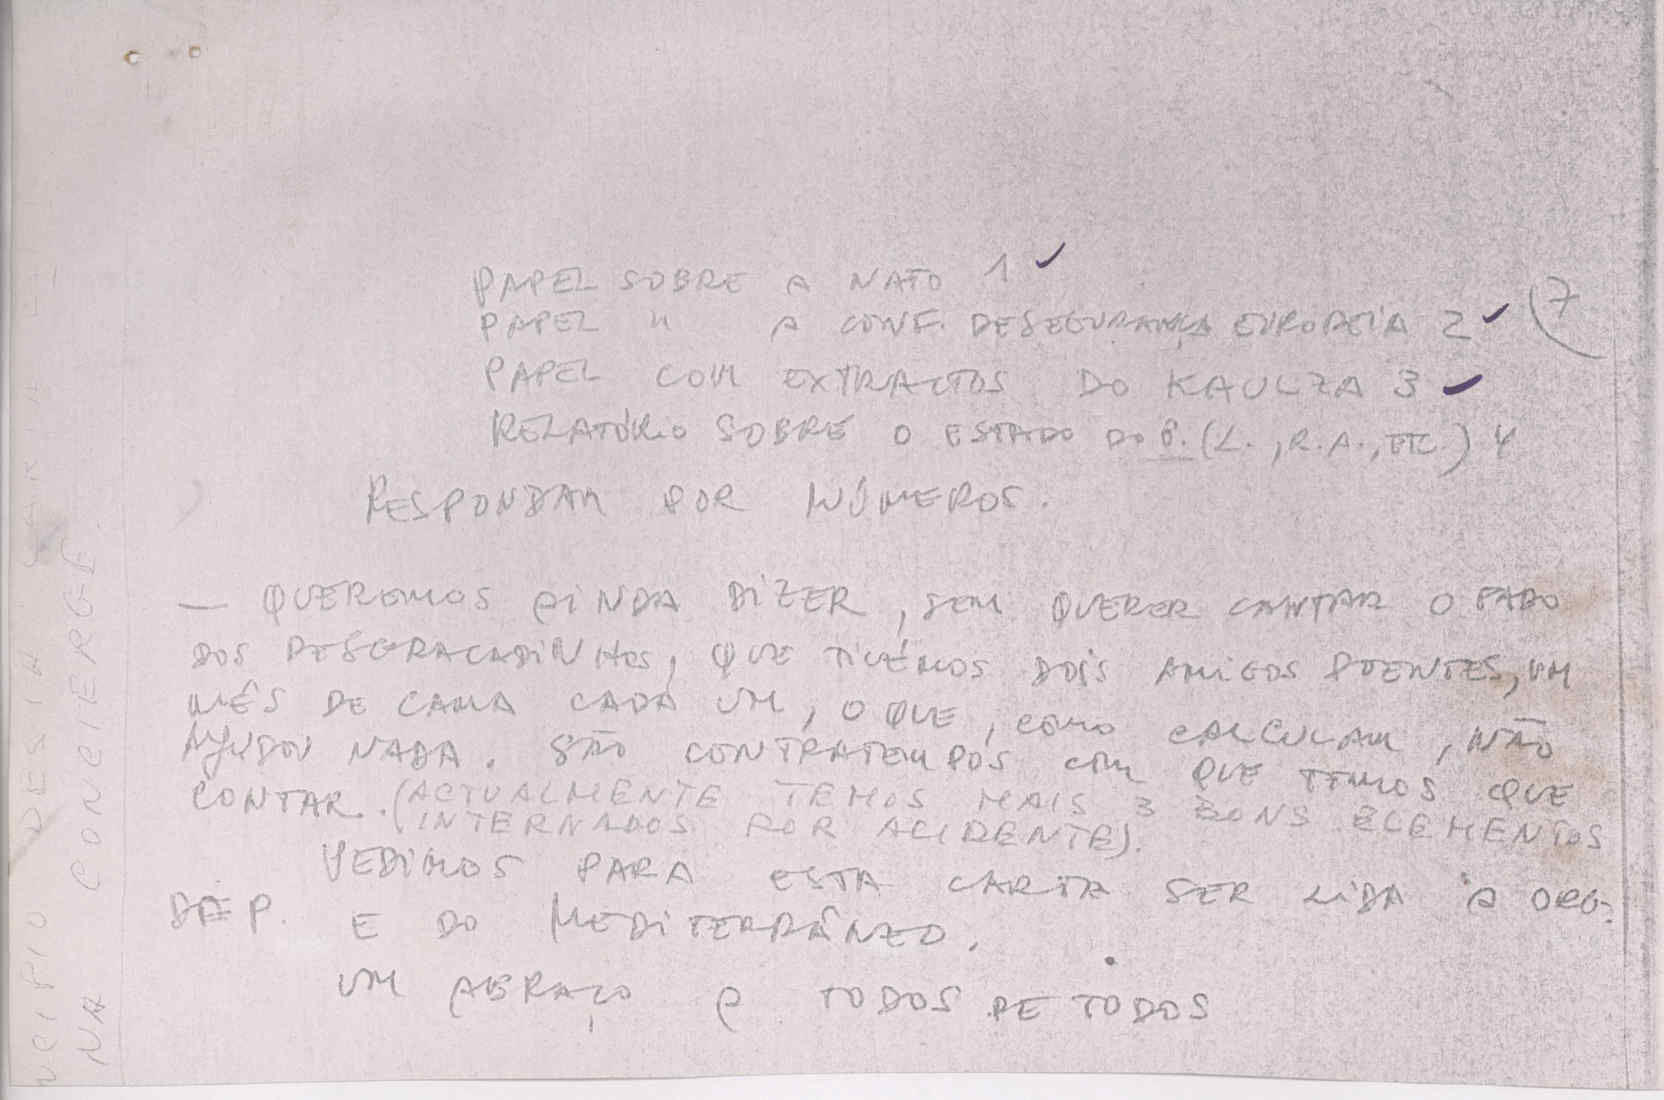 PAPEL SOBRE A NATO 1 ✓
PAPEL " A CONF. DE SEGURANÇA EUROPEIA 2 ✓ (7
PAPEL COM EXTRACTOS DO KAULZA 3 ✓
RELATÓRIO SOBRE O ESTADO DO P. (L., R.A., ETC.) 4
RESPONDAM POR NÚMEROS.
— QUEREMOS AINDA DIZER, SEM QUERER CANTAR O FADO
DOS DESGRACADINHOS, QUE TIVÉMOS DOIS AMIGOS DOENTES, UM
MÊS DE CAMA CADA UM, O QUE, COMO CALCULAM, NÃO
AJUDOU NADA. SÃO CONTRATEMPOS COM QUE TEMOS QUE
CONTAR. (ACTUALMENTE TEMOS MAIS 3 BONS ELEMENTOS
INTERNADOS POR ACIDENTE).
PEDIMOS PARA ESTA CARTA SER LIDA À ORG.
DE P. E DO MEDITERRÂNEO.
UM ABRAÇO A TODOS DE TODOS
NA CONCIERGE